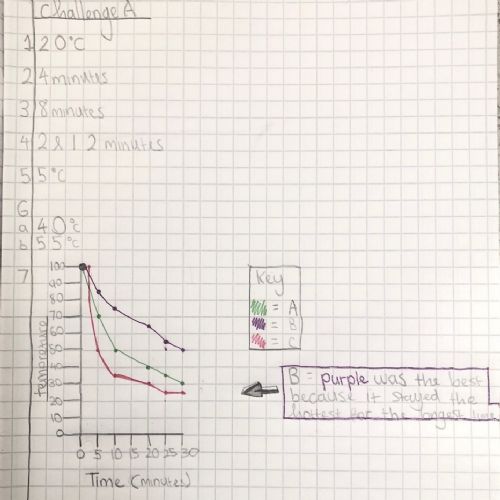 Challenge A
1 20°C
2 4 minutes
3 8 minutes
4 2 & 12 minutes
5 55°C
6
a 40°C
b 55°C
7
100
90
80
70
60
50
40
30
20
10
0
temperature
0 5 10 15 20 25 30
Time (minutes)
Key
= A
= B
= C
B = purple was the best
because it stayed the
hottest for the longest time